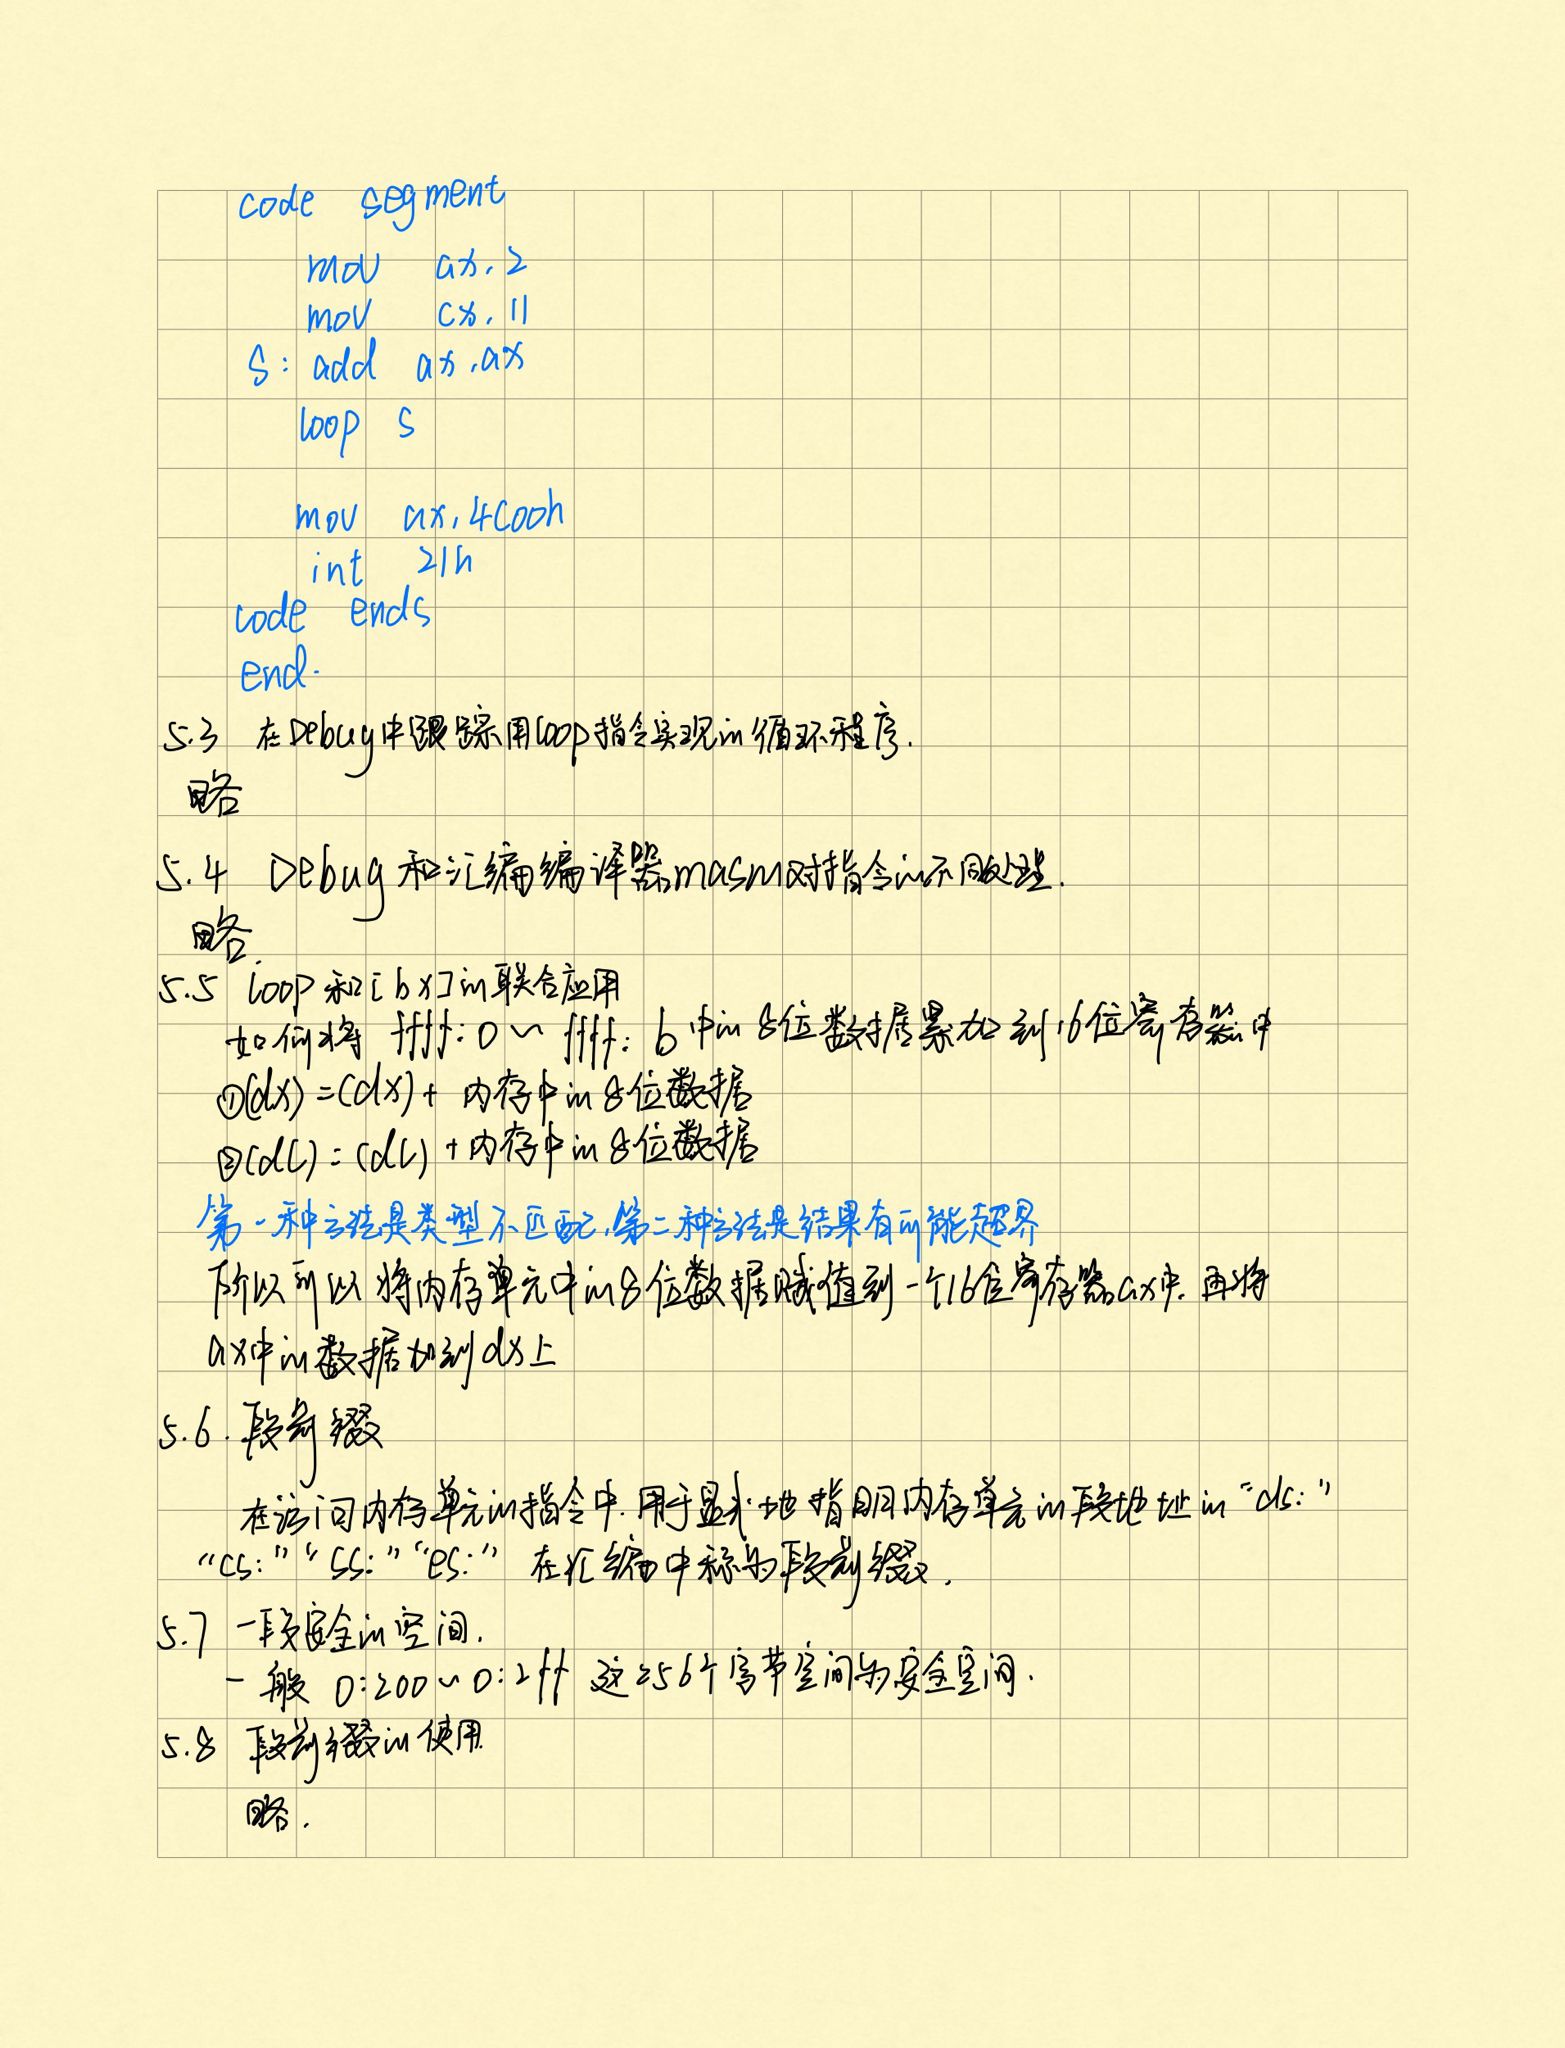 code segment
mov ax, 2
mov cx, 11
s: add ax, ax
loop s
mov ax, 4c00h
int 21h
code ends
end.
5.3 在Debug中跟踪用loop指令实现的循环程序.
略
5.4 Debug和汇编编译器masm对指令的不同处理.
略.
5.5 loop和[bx]的联合应用
如何将 ffff:0~ffff:b中的8位数据累加到16位寄存器中
①(dx)=(dx)+内存中的8位数据
②(dl)=(dl)+内存中的8位数据
第一种方法是类型不匹配,第二种方法是结果有可能超界
所以可以将内存单元中的8位数据赋值到一个16位寄存器ax中.再将
ax中的数据加到dx上
5.6.段前缀
在访问内存单元的指令中.用于显式地指明内存单元的段地址的“ds:”
“cs:”“ss:”“es:” 在汇编中称为段前缀.
5.7 一段安全的空间.
一般 0:200~0:2ff 这256个字节空间为安全空间.
5.8 段前缀的使用.
略.